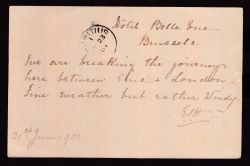 Hôtel Belle Vue
Brussels.
We are breaking the journey
here between & London
Fine weather but rather Windy
20th June 1901